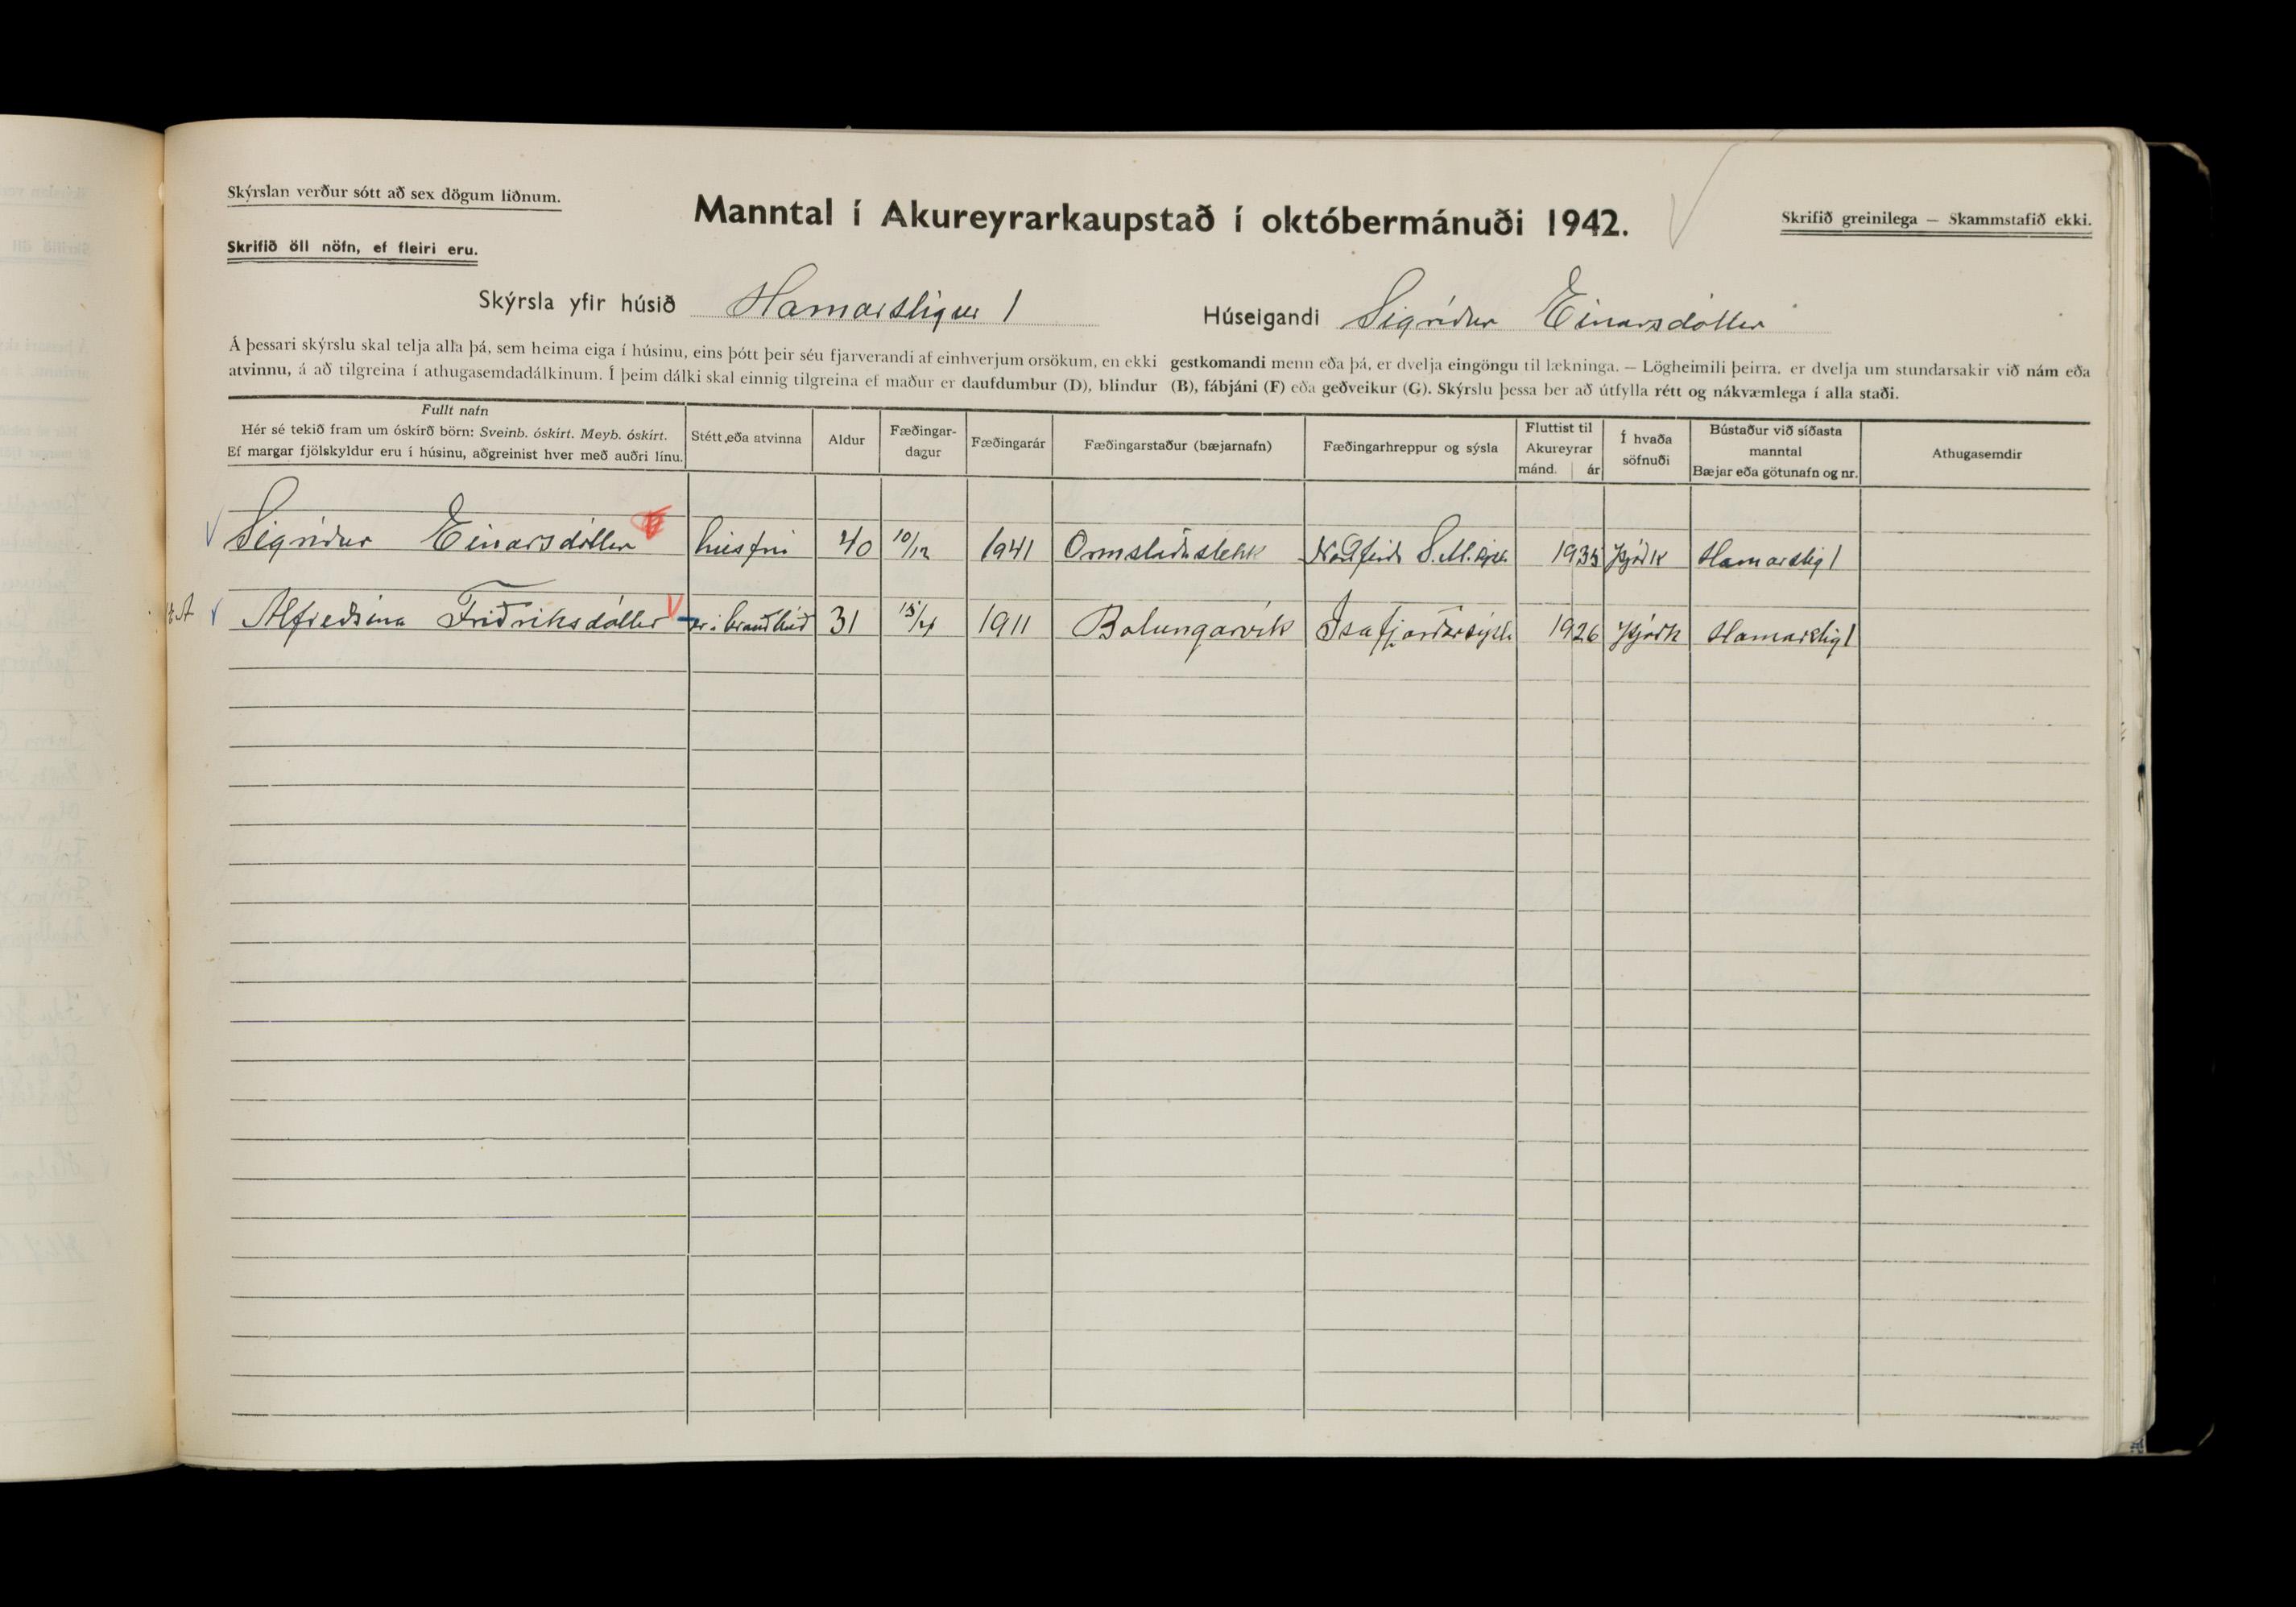 Skýrslan verður sótt að sex dögum liðnum.
Skrifið öll nöfn, ef fleiri eru.
Manntal í Akureyrarkaupstað í októbermánuði 1942.
Skrifið greinilega — Skammstafið ekki.
Skýrsla yfir húsið Hamarstígur 1
Húseigandi Sigríður Einarsdóttir
Á þessari skýrslu skal telja alla þá, sem heima eiga í húsinu, eins þótt þeir séu fjarverandi af einhverjum orsökum, en ekki gestkomandi menn eða þá, er dvelja eingöngu til lækninga. — Lögheimili þeirra, er dvelja um stundarsakir við nám eða
atvinnu, á að tilgreina í athugasemdadálkinum. Í þeim dálki skal einnig tilgreina ef maður er daufdumbur (D), blindur (B), fábjáni (F) eða geðveikur (G). Skýrslu þessa ber að útfylla rétt og nákvæmlega í alla staði.
Fullt nafn
Hér sé tekið fram um óskírð börn: Sveinb. óskírt. Meyb. óskírt.
Ef margar fjölskyldur eru í húsinu, aðgreinist hver með auðri línu.
Stétt eða atvinna
Aldur
Fæðingar-
dagur
Fæðingarár
Fæðingarstaður (bæjarnafn)
Fæðingarhreppur og sýsla
Fluttist til
Akureyrar
mánd. ár
Í hvaða
söfnuði
Bústaður við síðasta
manntal
Bæjar eða götunafn og nr.
Athugasemdir
Sigríður Einarsdóttir húsfrú 40 10/12 1941 Ormstaðastekk Norðfirði S.M.sýsl. 1935 Þjóðk Hamarstíg 1
Alfreðsína Friðriksdóttir er í brauðbúð 31 15/4 1911 Bolungarvík Ísafjarðarsýsl. 1926 Þjóðk Hamarstíg 1